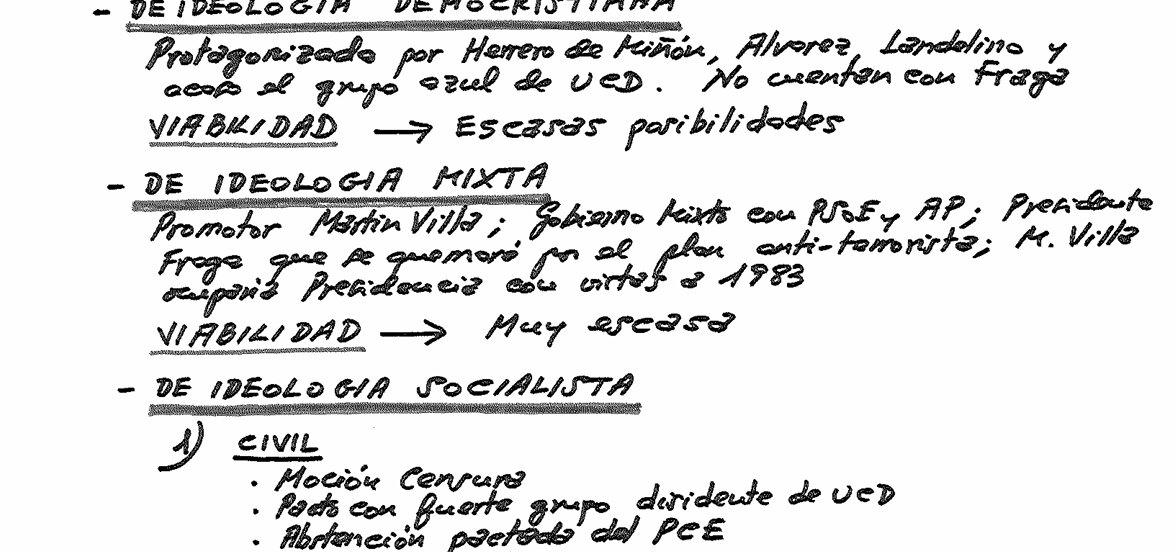 - DE IDEOLOGIA DEMOCRISTIANA
Protagonizado por Herrero de Miñón, Alvarez, Landelino y
acaso el grupo azul de UCD. No cuentan con Fraga
VIABILIDAD → Escasas posibilidades
- DE IDEOLOGIA MIXTA
Promotor Martin Villa; Gobierno Mixto con PSOE y AP; Presidente
Fraga que se quemará por el plan anti-terrorista; M. Villa
ocuparia Presidencia con vistas a 1983
VIABILIDAD → Muy escasa
- DE IDEOLOGIA SOCIALISTA
1) CIVIL
. Moción Censura
. Pacto con fuerte grupo disidente de UCD
. Abstención pactada del PCE